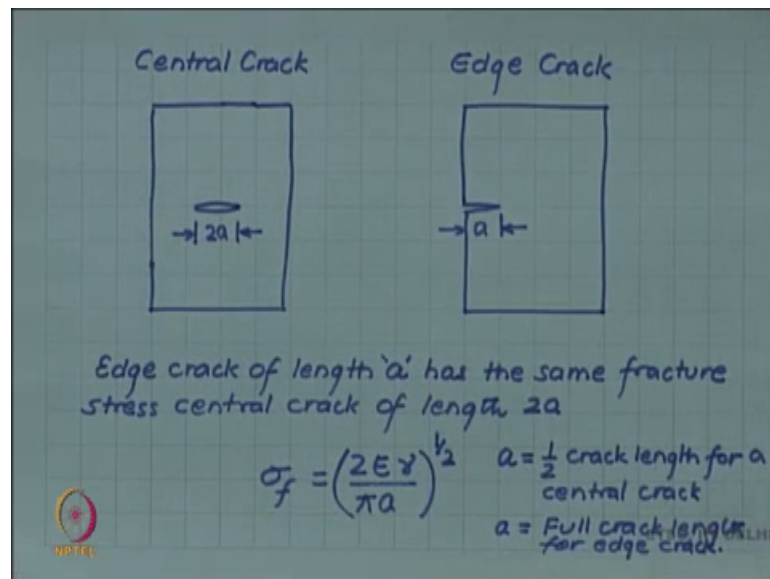 Central Crack
Edge Crack
2a
a
Edge crack of length 'a' has the same fracture
stress central crack of length 2a
σ_f = (2Eγ/πa)^1/2
a = 1/2 crack length for a
central crack
a = Full crack length
for edge crack.
NPTEL